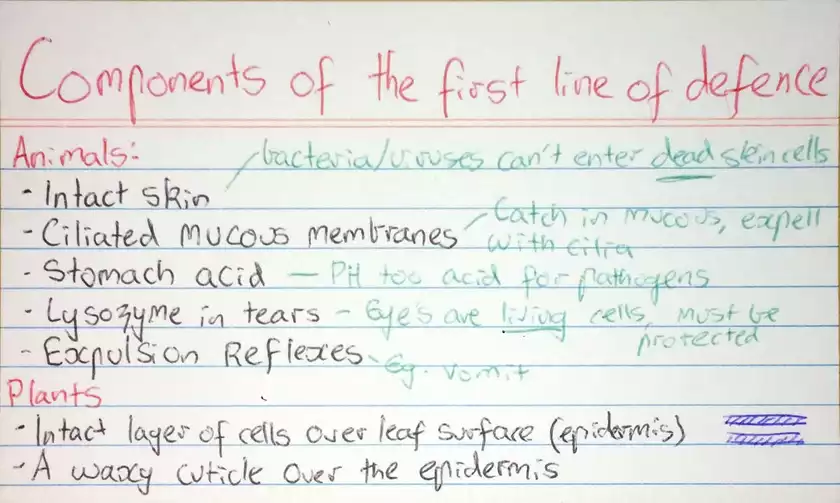 Components of the first line of defence
Animals:
bacteria/viruses can't enter dead skin cells
- Intact skin
- Ciliated mucous membranes
Catch in mucous, expell
with cilia
- Stomach acid – PH too acid for pathogens
- Lysozyme in tears – Eye's are living cells, must be
protected
- Expulsion Reflexes - Eg. vomit
Plants
- Intact layer of cells over leaf surface (epidermis)
- A waxy cuticle over the epidermis